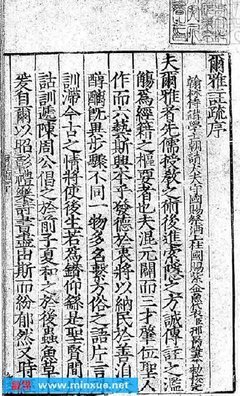 爾雅疏序
翰林侍講學士朝請大夫守國子祭酒上柱國賜紫金魚袋邢昺等奉勑校定
夫爾雅者先儒授教之術後進索隱之方誠傳註之濫
觴為經籍之樞要者也夫混元闢而三才肇位聖人
作而六藝斯興本乎發德於衷將以納民於善洎夫
醇醨既異步驟不同一物多名繫方俗之語片言殊
訓滯今古之情將使後生若為鑽仰繇是聖賢間出
詁訓遞陳周公倡之於前子夏和之於後蟲魚草木
爰自爾以昭彰禮樂詩書盡由斯而紛郁然又時
www.minxue.net